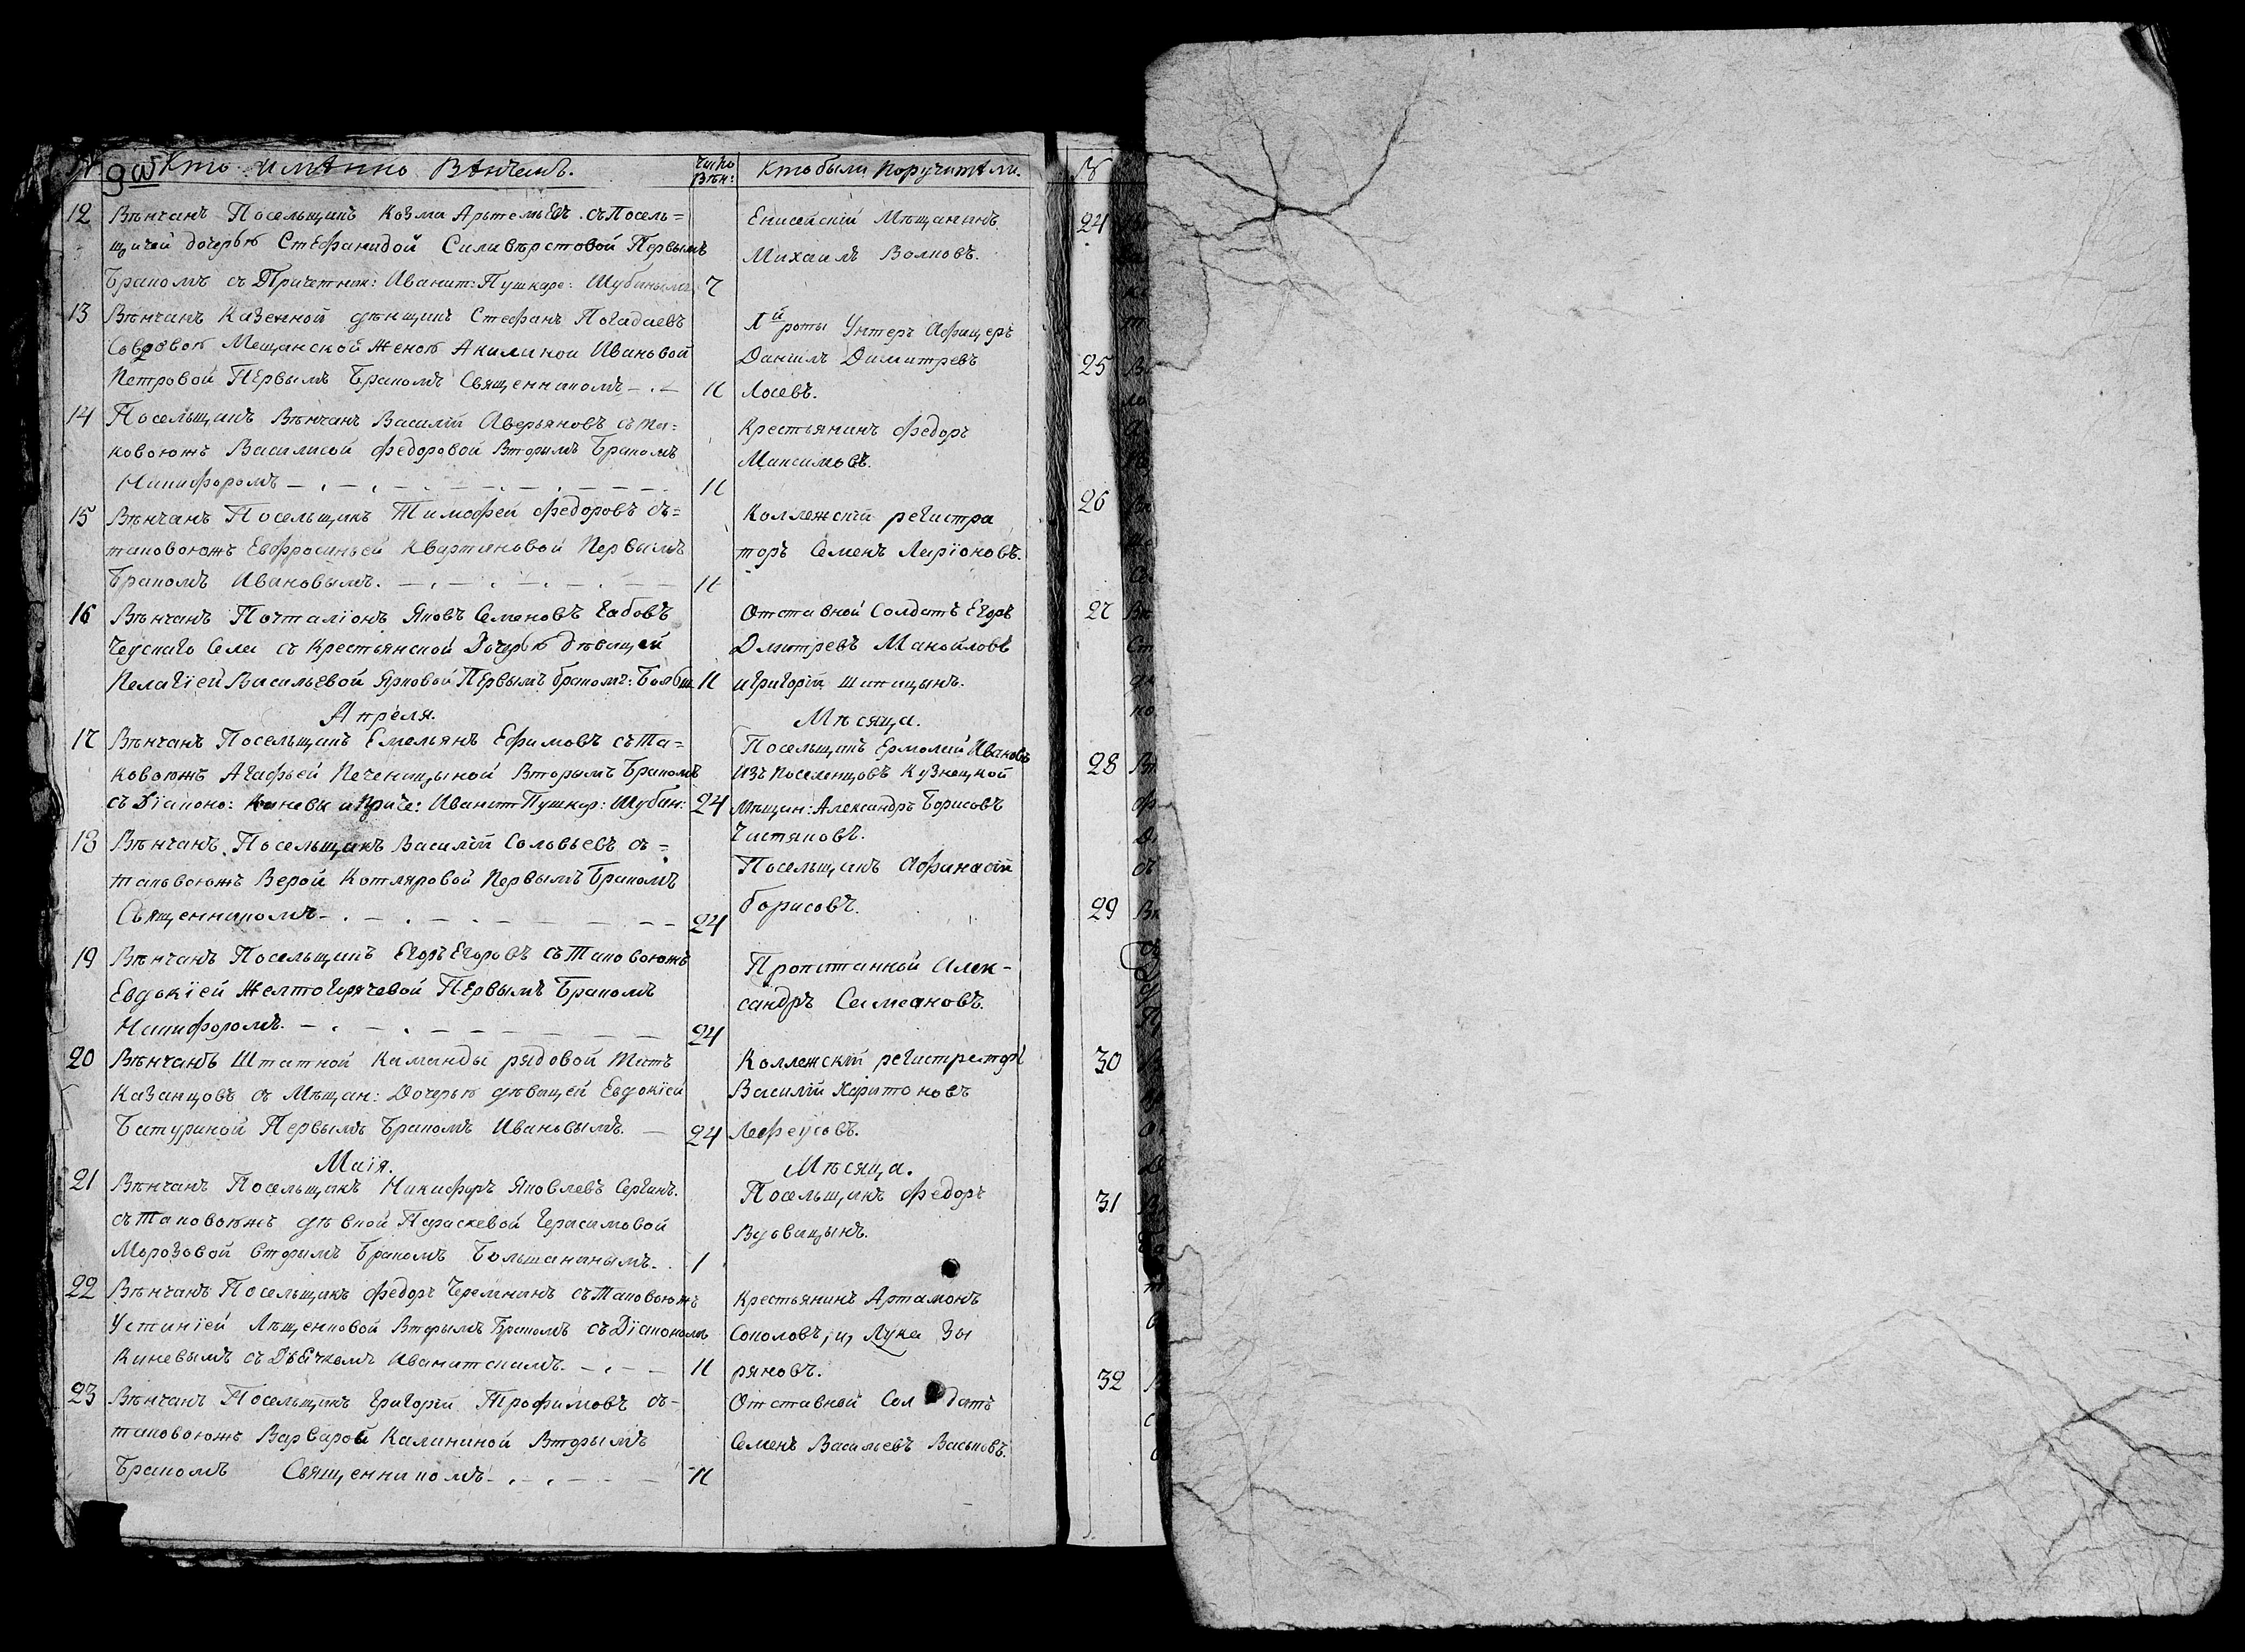 № Кто имѧнно Вѧнчанъ. Число Вѣн: Кто были Поручитѧли.
12 Вѣнчанъ Посельщикъ Козма Артемьевъ съ Посель=
щичей дочерью Стефанидой Силивѣрстовой Первымъ
Бракомъ съ Причетник: Иванит: Пушкаре: Шубинымъ 7
Енисейскій Мѣщанинъ
Михаилъ Волковъ.
13 Вѣнчанъ Казенной дѣнщикъ Стефанъ Погадаевъ
Совдовою Мещанской Женою Акилиной Ивановой
Петровой Первымъ Бракомъ Священникомъ — . — 11
1й роты Унтеръ Афицеръ
Даніилъ Димитревъ
Лосевъ.
14 Посельщикъ Вѣнчанъ Василій Аверьяновъ съ та=
ковоюжъ Василисой Федоровой Вторымъ Бракомъ
Никифоромъ — . — . — . — 11
Крестьянинъ Федоръ
Максимовъ.
15 Вѣнчанъ Посельщикъ Тимофей Федоровъ съ=
таковоюжъ Евфросиньей Квартяновой Первымъ
Бракомъ Ивановымъ. — . — . — . — 11
Коллежскій регистра
торъ Семенъ Ларіоновъ.
16 Вѣнчанъ Почталіонъ Яковъ Семеновъ Габовъ
Чеускаго Села съ Крестьянской Дочерью дѣвицей
Пелагіей Васильевой Ярковой Первымъ бракомъ: Больш 11
Отставной Солдатъ Егоръ
Дмитревъ Манойловъ
и Григорій Шипицынъ.
Апреля. Мѣсяца.
17 Вѣнчанъ Посельщикъ Емельянъ Ефимовъ съ Та=
ковоюжъ Агафьей Печеницыной Вторымъ Бракомъ
съ Діаконо: Киневы и Приче: Иванит Пушкар: Шубин: 24
Посельщикъ Ермолай Ивановъ
Изъ поселенцовъ Кузнецкой
Мѣщан: Александръ Борисовъ
Чистяковъ.
18 Вѣнчанъ Посельщикъ Василій Соловьевъ съ=
таковоюжъ Верой Котляровой Первымъ Бракомъ
Священникомъ — . — . — . — 24
Посельщикъ Афанасій
борисовъ.
19 Вѣнчанъ Посельщикъ Егоръ Егоровъ съ Таковоюжъ
Евдокіей Желтогорячевой Первымъ Бракомъ
Никифоромъ. — . — . — 24
Пропитанной Алек-
сандръ Симеановъ.
20 Вѣнчанъ Штатной Каманды рядовой Титъ
Казанцовъ съ Мѣщан: Дочерью дѣвицей Евдокіей
Батуриной Первымъ Бракомъ Ивановымъ. — 24
Коллежскій регистраторъ
Василій Харитоновъ
Лефеусовъ.
Маія. Мѣсяца.
21 Вѣнчанъ Посельщикъ Никифоръ Яковлевъ Сергинъ.
съ Таковоюжъ дѣвкой Параскевой Герасимовой
Морозовой вторымъ Бракомъ Большанинымъ. 1
Посельщикъ Федоръ
Вдовицынъ.
22 Вѣнчанъ Посельщикъ Федоръ Черемнинъ съ Таковоюжъ
Устиніей Лященковой Вторымъ Бракомъ съ Діакономъ
Киневымъ съ Дьячкомъ Иванитскимъ. — . — 11
Крестьянинъ Артамонъ
Соколовъ, и, Лука Зы
ряновъ.
23 Вѣнчанъ Посельщикъ Григорій Трофимовъ съ-
таковоюжъ Варварой Калининой Вторымъ
Бракомъ Священникомъ — . — . — 11
Отставной Солдатъ
Семенъ Васильевъ Васьковъ.
№
24
25
26
27
28
29
30
31
32